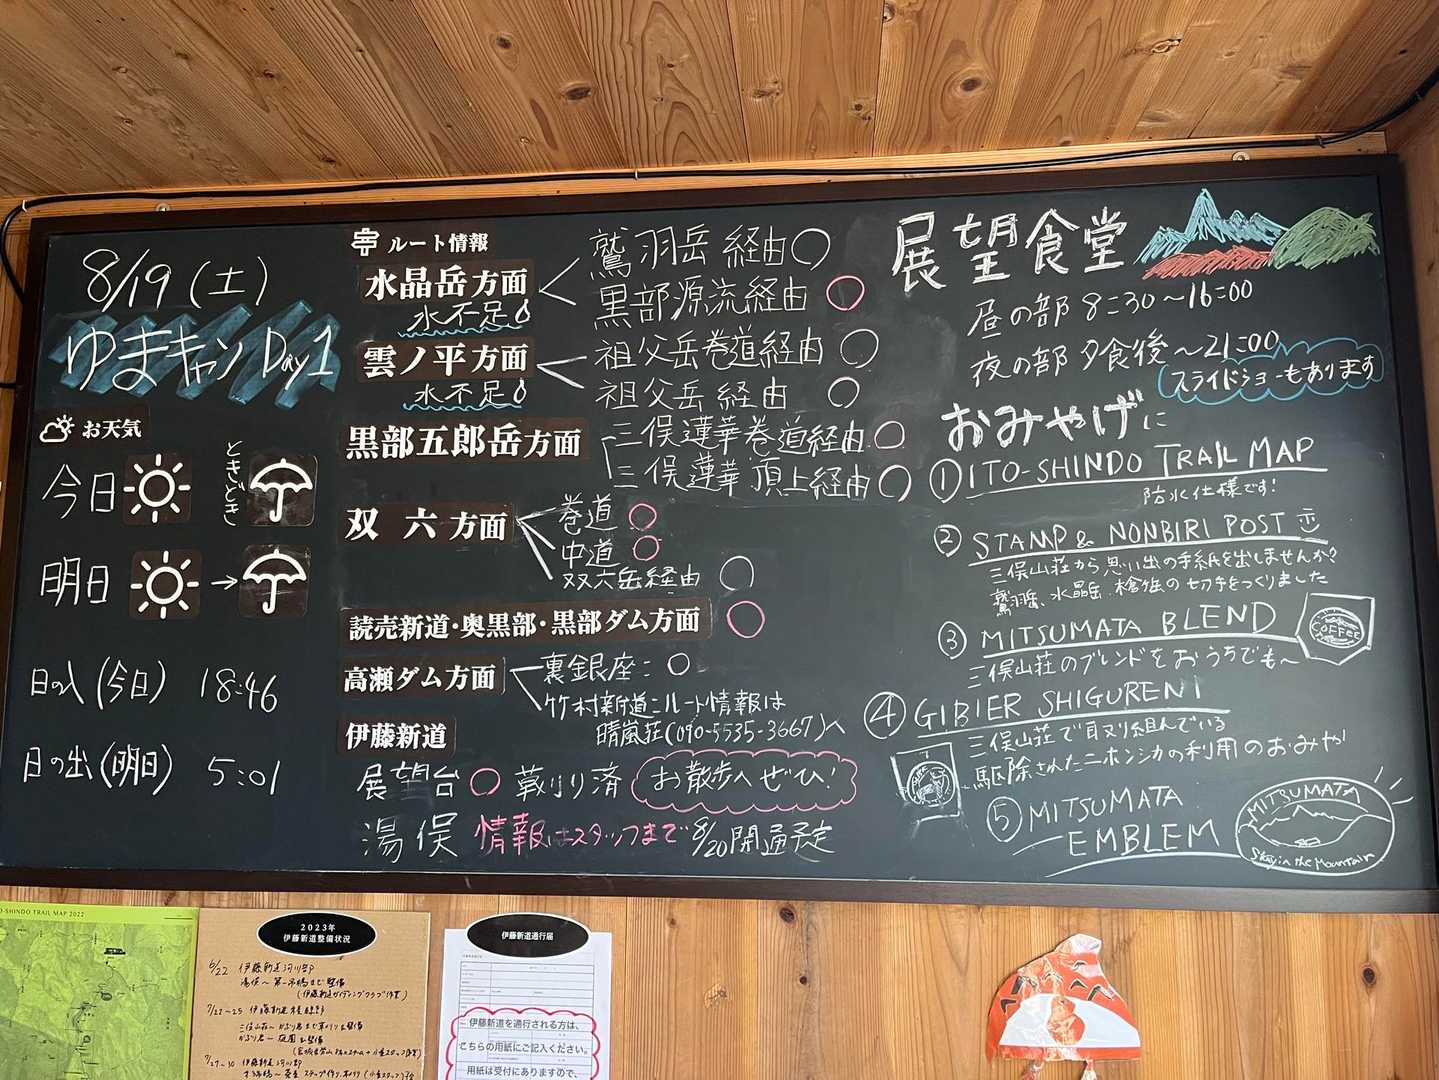 8/19 (土)
ゆまキャン Day1
お天気
今日
ときどき
明日 →
日の入 (今日) 18:46
日の出 (明日) 5:01
ルート情報
水晶岳方面
水不足
鷲羽岳 経由○
黒部源流経由 ○
雲ノ平方面
水不足
祖父岳巻道経由 ○
祖父岳 経由 ○
黒部五郎岳方面
三俣蓮華巻道経由○
三俣蓮華 頂上経由○
双六方面
巻道 ○
中道 ○
双六岳経由 ○
読売新道・奥黒部・黒部ダム方面 ○
高瀬ダム方面
裏銀座: ○
竹村新道:ルート情報は
晴嵐荘(090-5535-3667)へ
伊藤新道
展望台 ○ 草刈り済 お散歩へ ぜひ!
湯俣 情報はスタッフまで 8/20開通予定
展望食堂
昼の部 8:30〜16:00
夜の部 夕食後〜21:00
スライドショーもあります
おみやげに
① ITO-SHINDO TRAIL MAP
防水仕様です!
② STAMP & NONBIRI POST
三俣山荘から思い出の手紙を出しませんか?
鷲羽岳、水晶岳、槍ヶ岳の切手をつくりました
③ MITSUMATA BLEND
COFFEE
三俣山荘のブレンドをおうちでも〜
④ GIBIER SHIGURENI
三俣山荘で取り組んでいる
駆除されたニホンジカの利用のおみや
⑤ MITSUMATA
EMBLEM
MITSUMATA
Stay in the Mountain
O-SHINDO TRAIL MAP 2022
2023年
伊藤新道整備状況
6/22 伊藤新道河川部
7/22~25 伊藤新道
7/27~30 伊藤新道河川部
伊藤新道通行届
伊藤新道を通行される方は、
こちらの用紙にご記入ください。
用紙は受付にありますので、